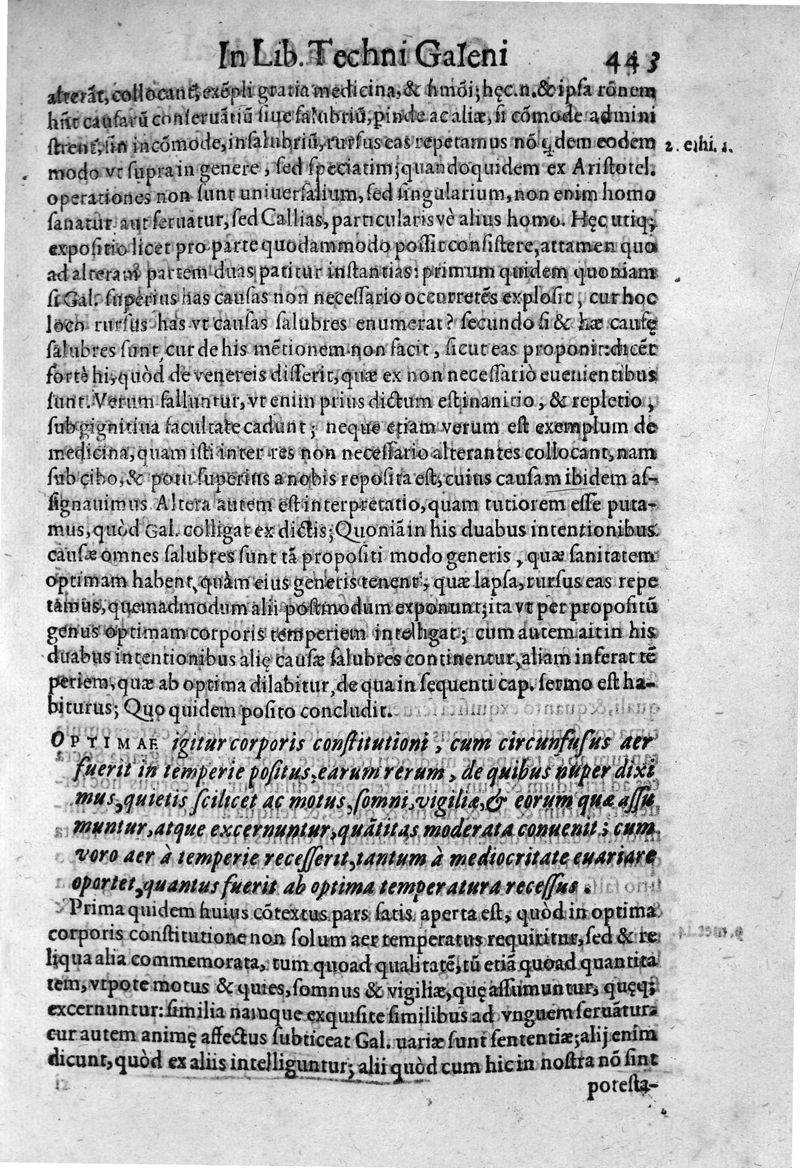 In Lib. Techni Galeni 443
alterãt, collocant, exẽpli gratia medicina, & hmõi; hęc. n. & ipsa rõnem
hñt causarũ conseruatiũ siue salubriũ, pinde ac aliæ, si cõmode admini
strent, sin incõmode, insalubriũ, rursus eas repetamus nõ qdem eodem
2. ethi. 1.
modo vt supra in genere, sed speciatim; quandoquidem ex Aristotel.
operationes non sunt uniuersalium, sed singularium, non enim homo
sanatur aut seruatur, sed Callias, particularisvè alius homo. Hęc utiq;
expositio licet pro parte quodammodo possit consistere, attamen quo
ad alteram partem duas patitur instantias: primum quidem quoniam
si Gal. superius has causas non necessario occurretẽs explosit, cur hoc
loco rursus has vt causas salubres enumerat? secundo si & hæ causę
salubres sunt, cur de his mẽtionem non facit, sicut eas proponit: dicẽt
fortè hi, quòd de venereis disserit, quæ ex non necessariò euenientibus
sunt. Verum falluntur, vt enim prius dictum est inanitio, & repletio,
sub gignitiua facultate cadunt; neque etiam verum est exemplum de
medicina, quam isti inter res non necessario alterantes collocant, nam
sub cibo, & potu superius a nobis reposita est, cuius causam ibidem as-
signauimus Altera autem est interpretatio, quam tutiorem esse puta-
mus, quòd Gal. colligat ex dictis; Quoniã in his duabus intentionibus
causæ omnes salubres sunt tã propositi modo generis, quæ sanitatem
optimam habent, quàm eius generis tenent, quæ lapsa, rursus eas repe
tamus, quemadmodum alii postmodum exponunt; ita vt per propositũ
genus optimam corporis temperiem intelligat; cum autem ait in his
duabus intentionibus alię causæ salubres continentur, aliam inferat tẽ
periem, quæ ab optima dilabitur, de qua in sequenti cap. sermo est ha-
biturus; Quo quidem posito concludit.
OPTIMAE igitur corporis constitutioni, cum circunfusus aer
fuerit in temperie positus, earum rerum, de quibus nuper dixi
mus, quietis scilicet ac motus, somni, vigiliæ, & eorum quæ assu
muntur, atque excernuntur, quãtitas moderata conuenit; cum
voro aer à temperie recesserit, tantum à mediocritate euariare
oportet, quantus fuerit ab optima temperatura recessus.
Prima quidem huius cõtextus pars satis aperta est, quòd in optima
corporis constitutione non solum aer temperatus requiritur, sed & re
liqua alia commemorata, tum quoad qualitatẽ, tũ etiã quoad quantita
tem, vtpote motus & quies, somnus & vigiliæ, quę assumuntur, quęq;
excernuntur: similia namque exquisite similibus ad vnguem seruãtur.
cur autem animę affectus subticeat Gal. uariæ sunt sententiæ; alij enim
dicunt, quòd ex aliis intelliguntur; alii quòd cum hic in nostra nõ sint
potesta-